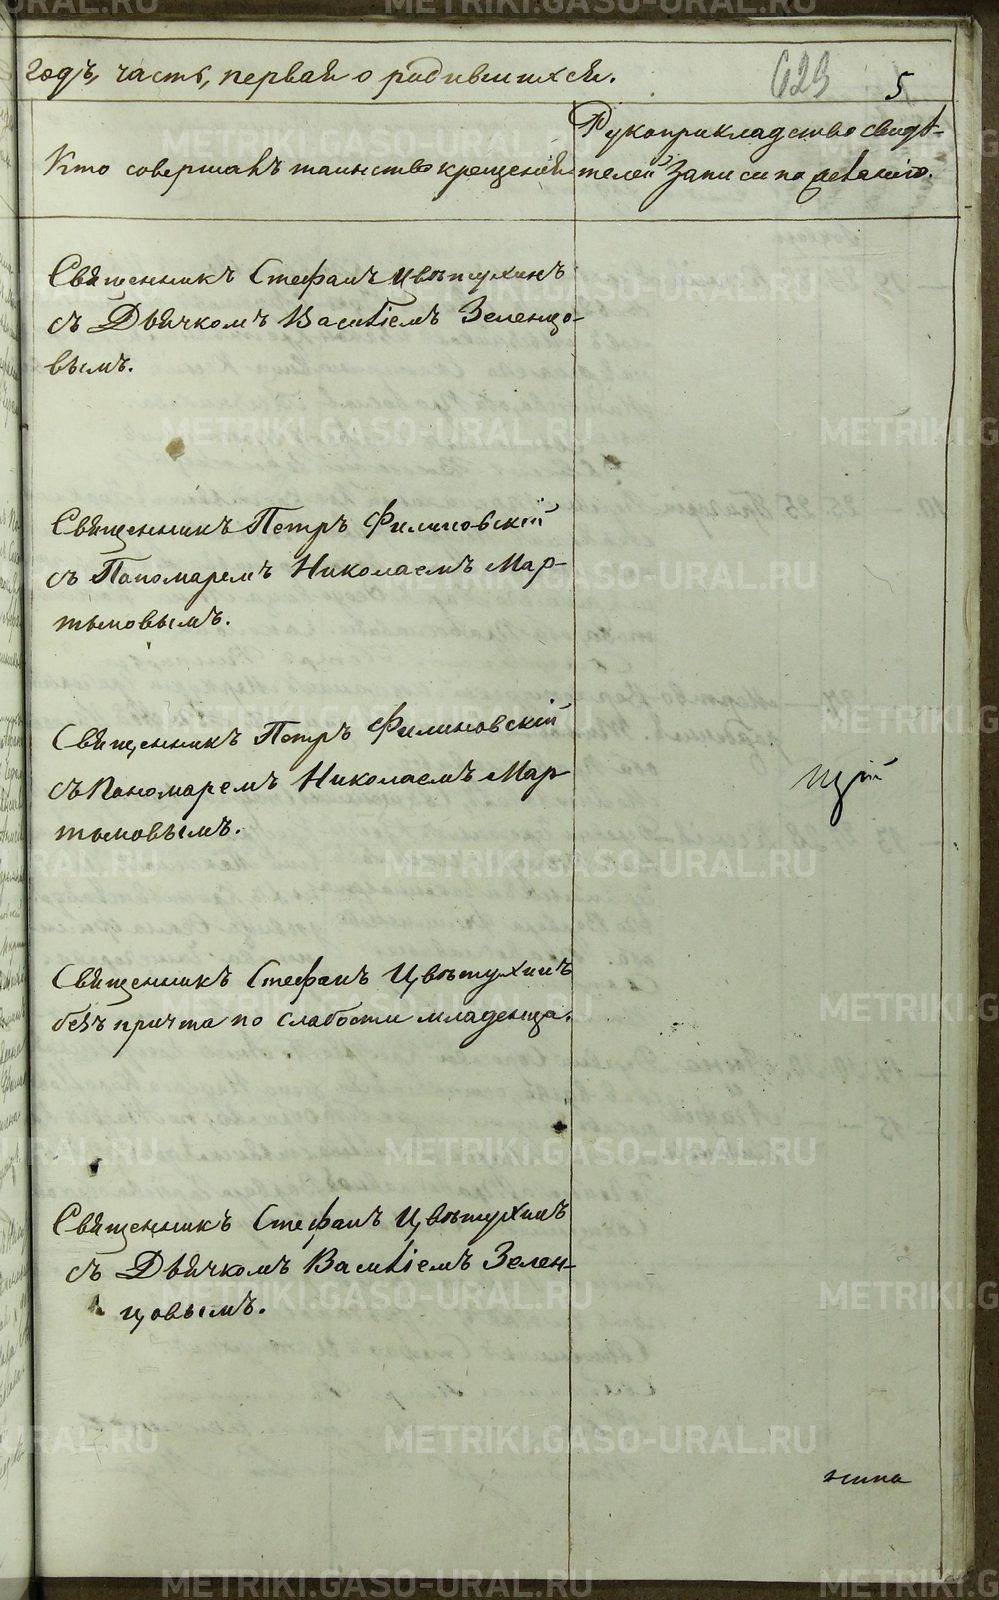 годъ, часть, первая о родившихся.
623
5
Кто совершалъ таинство крещенія
Рукоприкладство свидѣ-
телей записи по желанію.
Священникъ Стефанъ Цвѣтухинъ
съ Дьячкомъ Василіемъ Зеленцо-
вымъ.
Священникъ Петръ Филиновскій
съ Пономаремъ Николаемъ Мар-
тыновымъ.
Священникъ Петръ Филиновскій
съ Пономаремъ Николаемъ Мар-
тыновымъ.
Священникъ Стефанъ Цвѣтухинъ
безъ причта по слабости младенца.
Священникъ Стефанъ Цвѣтухинъ
съ Дьячкомъ Василіемъ Зелен-
цовымъ.
METRIKI.GASO-URAL.RU